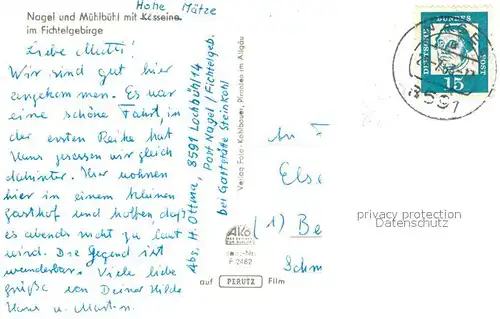 Hohe Mätze
Nagel und Mühlbühl mit Kösseine
im Fichtelgebirge
Liebe Mutti!
Wir sind gut hier
angekommen. Es war
eine schöne Fahrt, in
der ersten Reihe hat
Hans gesessen wir gleich
dahinter. Hier wohnen
hier in einem kleinen
Gasthof und hoffen, daß
es abends nicht zu laut
wird. Die Gegend ist
wunderbar. Viele liebe
Grüße von Deiner Hilde
Hans u. Martin
Abs. H. Ottma, 8591 Lochbühl 14
Post Nagel / Fichtelgeb.
bei Gaststätte Steinkohl
Verlag Foto-Kohlbauer, Pfronten im Allgäu
AKO
F 2482
auf PERUTZ Film
An F
Else
(1) Be
Schm
DEUTSCHE BUNDESPOST
15
8591
privacy protection
datenschutz